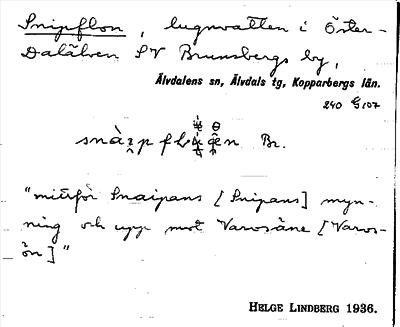 Snipflon, lugnvatten i Öster-
Dalälven SV Brunsbergs by,
Älvdalens sn, Älvdals tg, Kopparbergs län.
240 G 107
Br.
"mitför Snaipans [Snipans] myn-
ning och upp mot Varosåne [Varos-
ån]"
HELGE LINDBERG 1936.